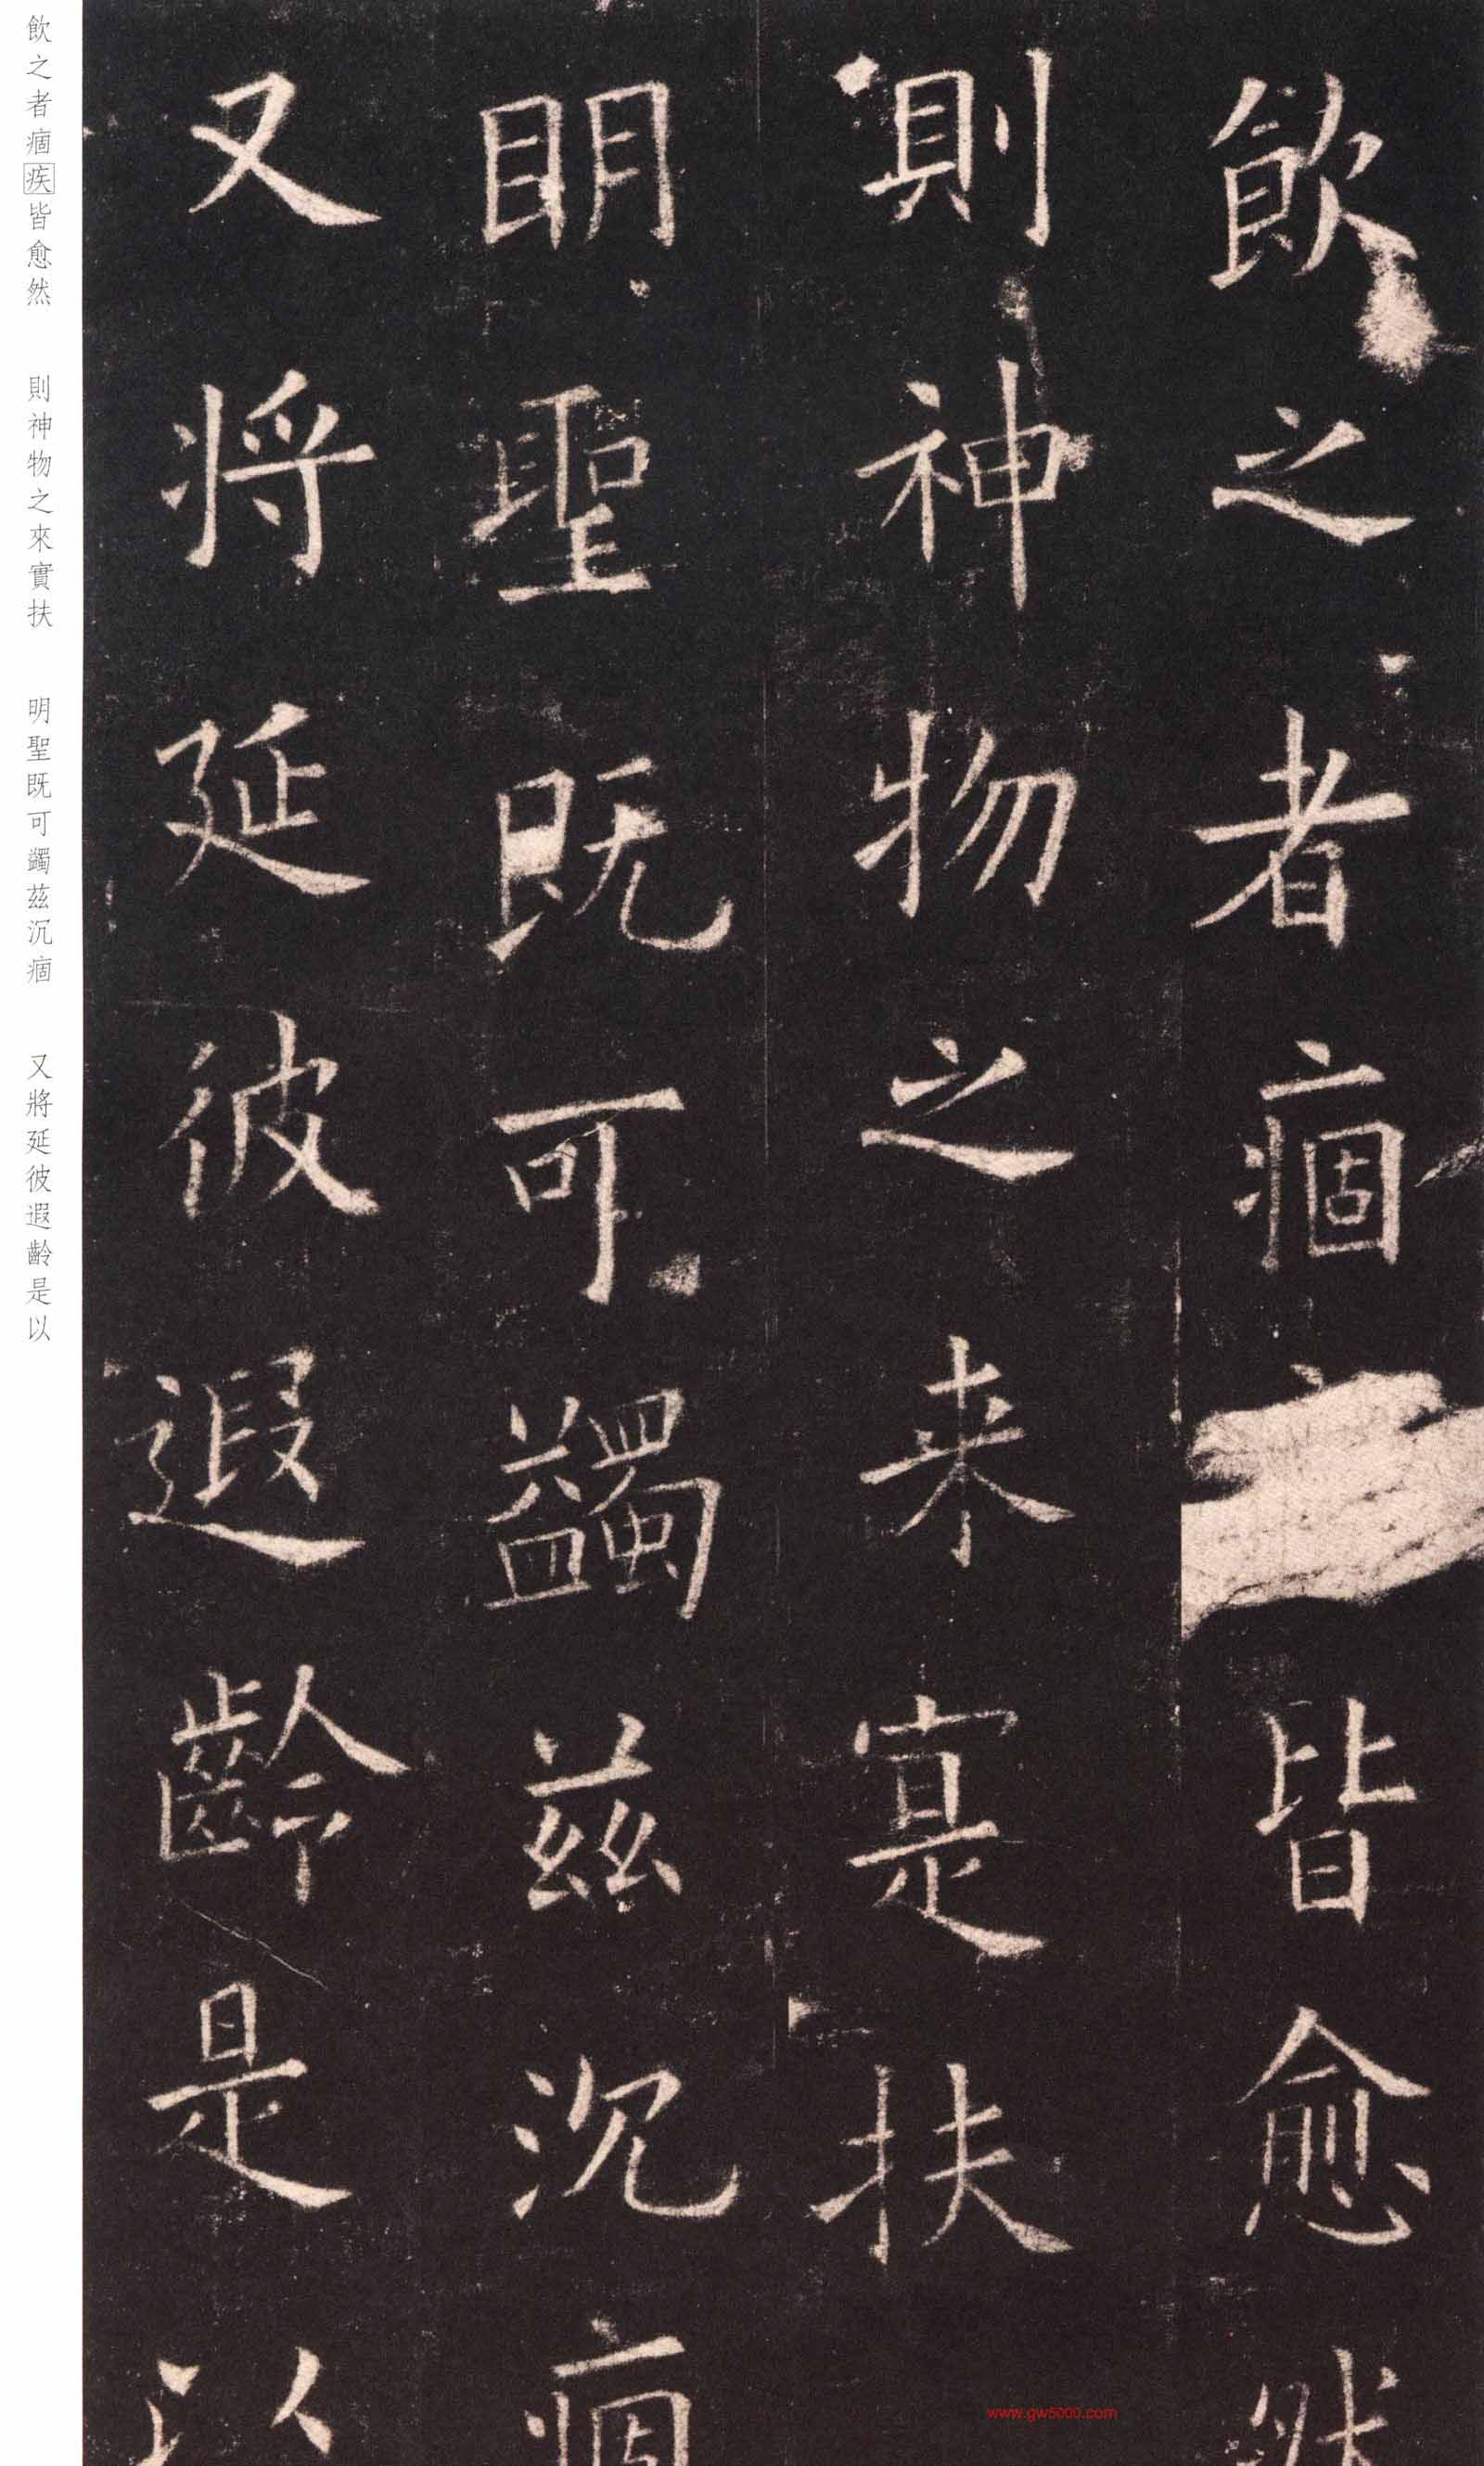 飲之者痼皆愈然
則神物之来寔扶
明聖既可蠲茲沉痼
又将延彼遐齡是以
飲之者痼疾皆愈然 則神物之來實扶 明聖既可蠲茲沉痼 又將延彼遐齡是以
www.gw5000.com